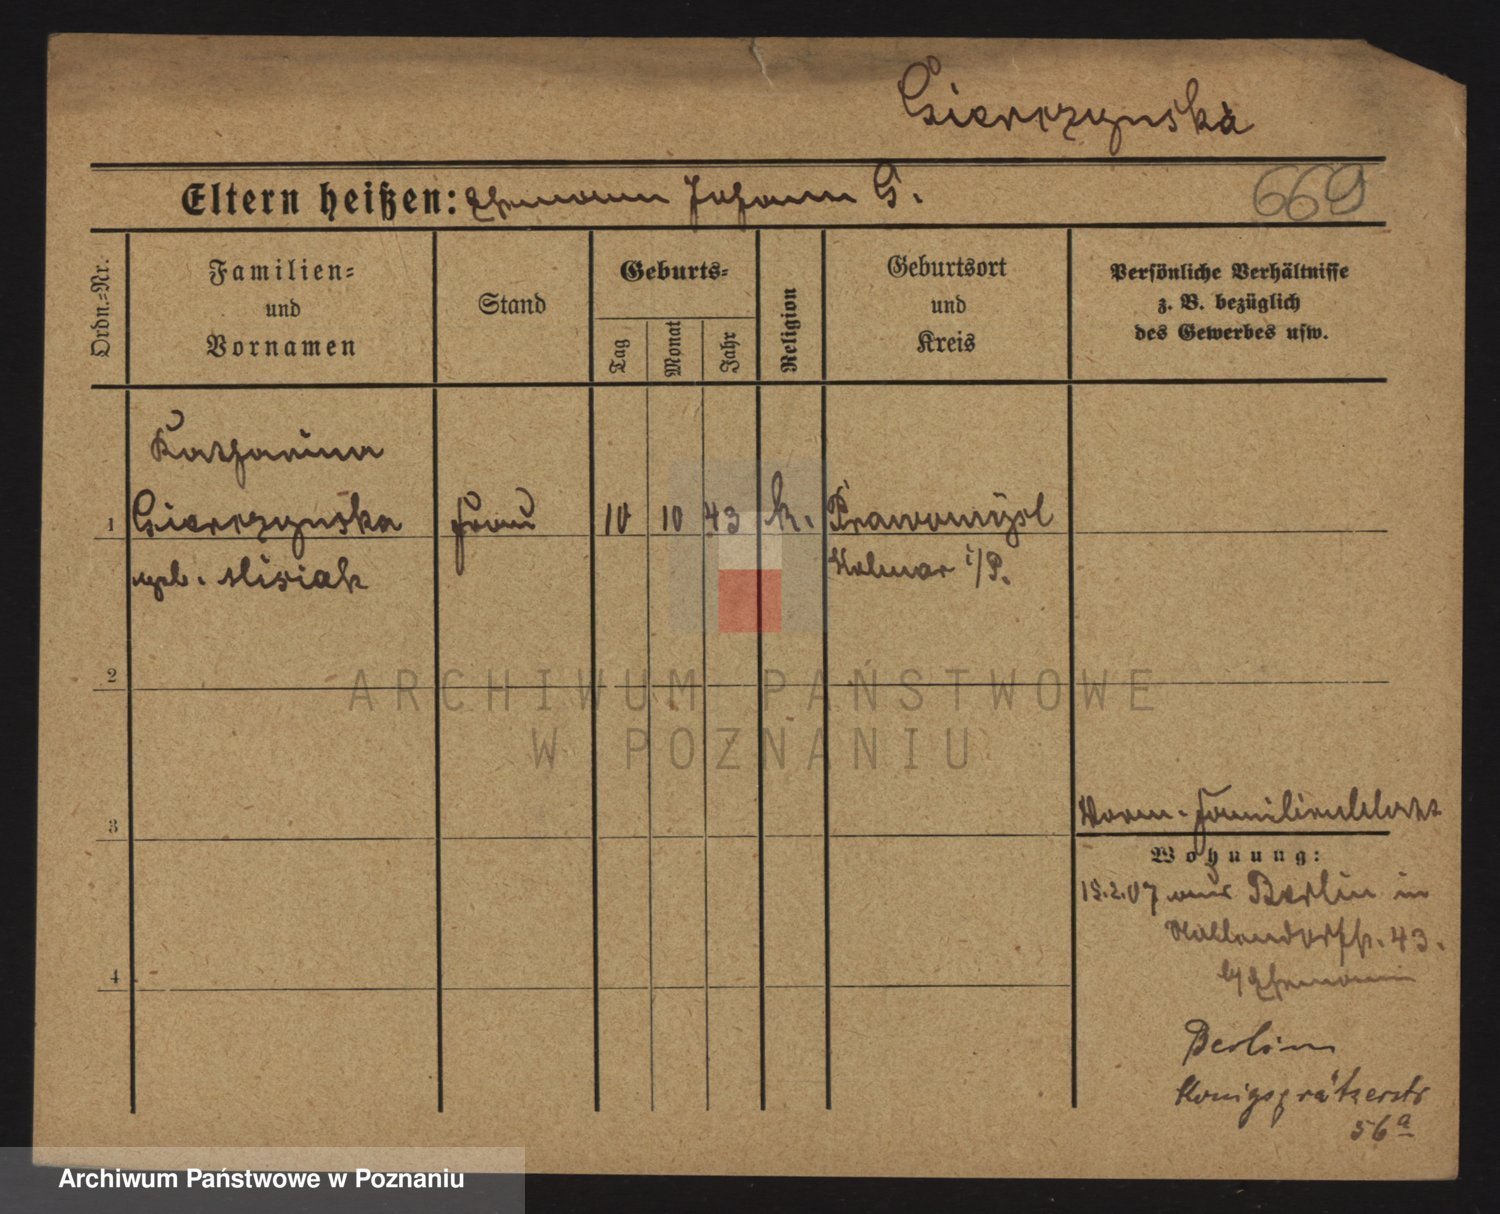 Gierczynska
Eltern heißen: Ehemann Johann G.
669
Ordn.=Nr.
Familien=
und
Vornamen
Stand
Geburts=
Tag
Monat
Jahr
Religion
Geburtsort
und
Kreis
Persönliche Verhältnisse
z. B. bezüglich
des Gewerbes usw.
Katharina
1 Gierczynska Frau 10 10 43 k. Prawomysl
geb. Misiak Kolmar i/P.
2
3
Vorm. Familienblatt
Wohnung:
15.2.07 aus Berlin in
43.
b/ Ehemann
4
Berlin
Königgrätzerstr
56a
ARCHIWUM PAŃSTWOWE
W POZNANIU
Archiwum Państwowe w Poznaniu